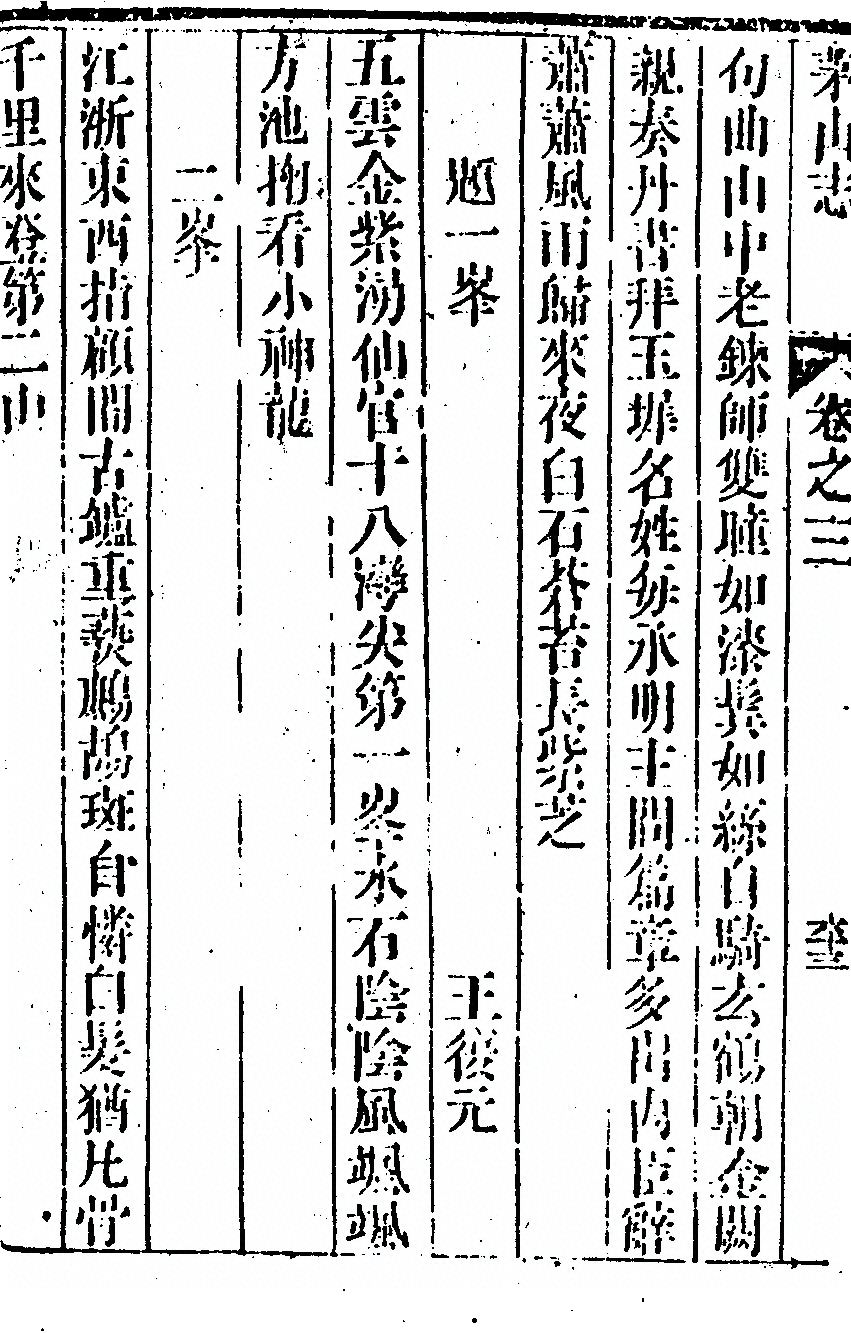 茅山志 卷之三 奎
句曲山中老鍊師雙瞳如漆鬢如絲白騎玄鶴朝金闕
親奏丹書拜玉墀名姓每承明主問篇章多出內臣辭
蕭蕭風雨歸來夜白石蒼苔長紫芝
題一峯 王復元
五雲金紫湧仙官十八灣尖第一峯水石陰陰風颯颯
方池掬看小神龍
二峯
江浙東西指顧間古鑪重爇鷓鴣斑自憐白髮猶凡骨
千里來登第二山